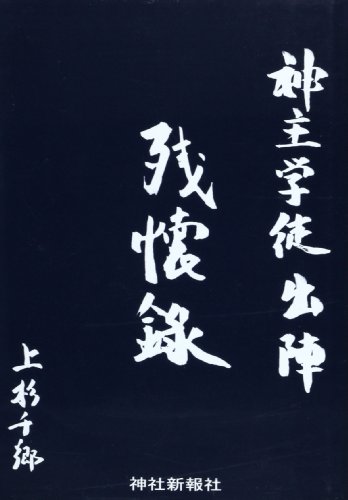 神主学徒出陣
残懐録
上杉千郷
神社新報社